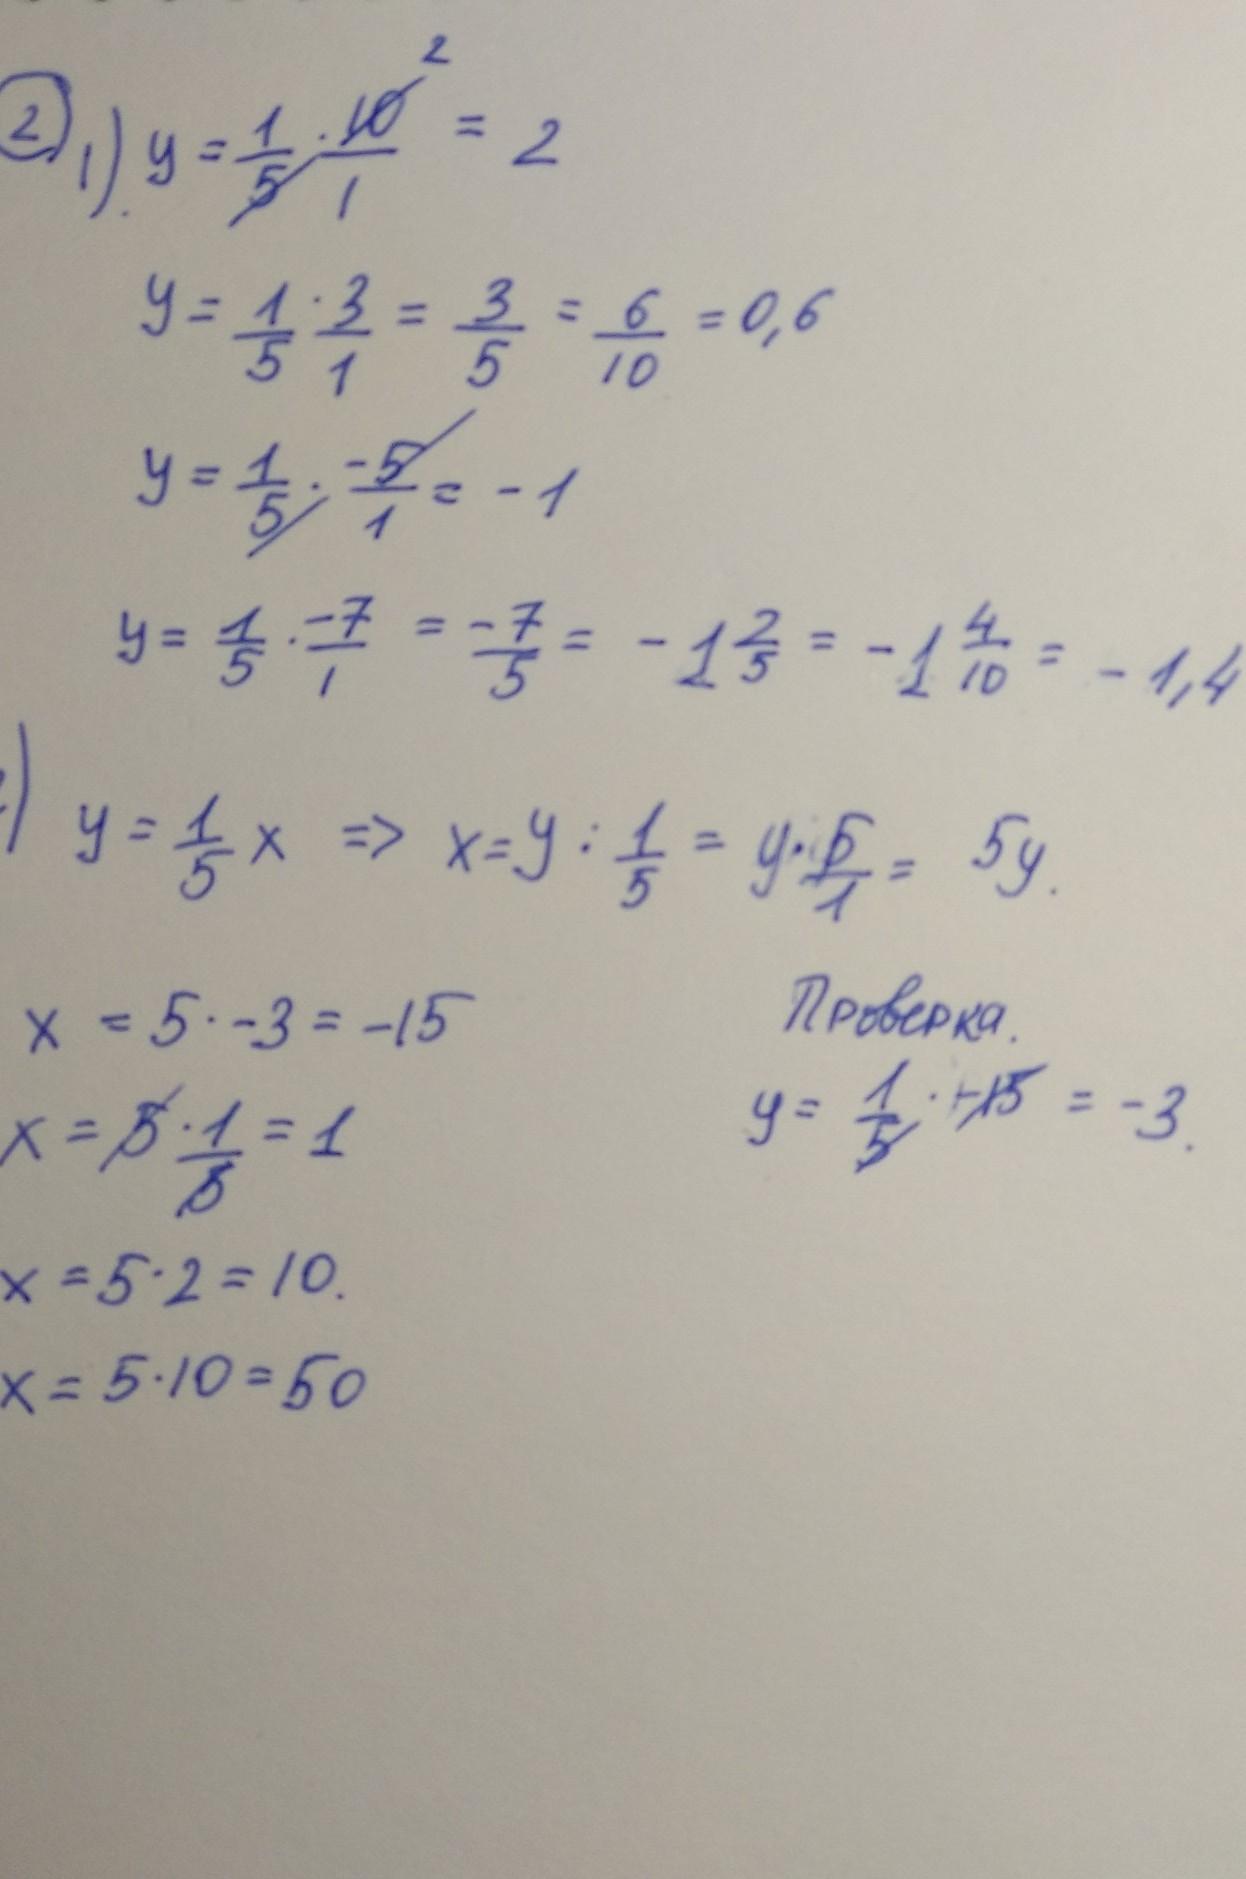 2) 1). y = 1/5 · 10/1 2 = 2
y = 1/5 · 3/1 = 3/5 = 6/10 = 0,6
y = 1/5 · -5/1 = -1
y = 1/5 · -7/1 = -7/5 = -1 2/5 = -1 4/10 = -1,4
) y = 1/5 x => x = y : 1/5 = y · 5/1 = 5y.
x = 5 · -3 = -15
Проверка.
x = 5 · 1/5 = 1
y = 1/5 · -15 = -3.
x = 5 · 2 = 10.
x = 5 · 10 = 50